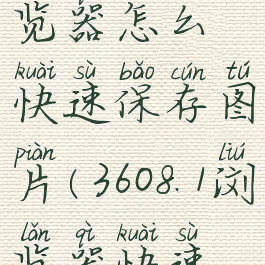 览器怎么
kuài sù bǎo cún tú
快速保存图
piàn liú
片(3608.1浏
lǎn qì kuài sù
览器快速